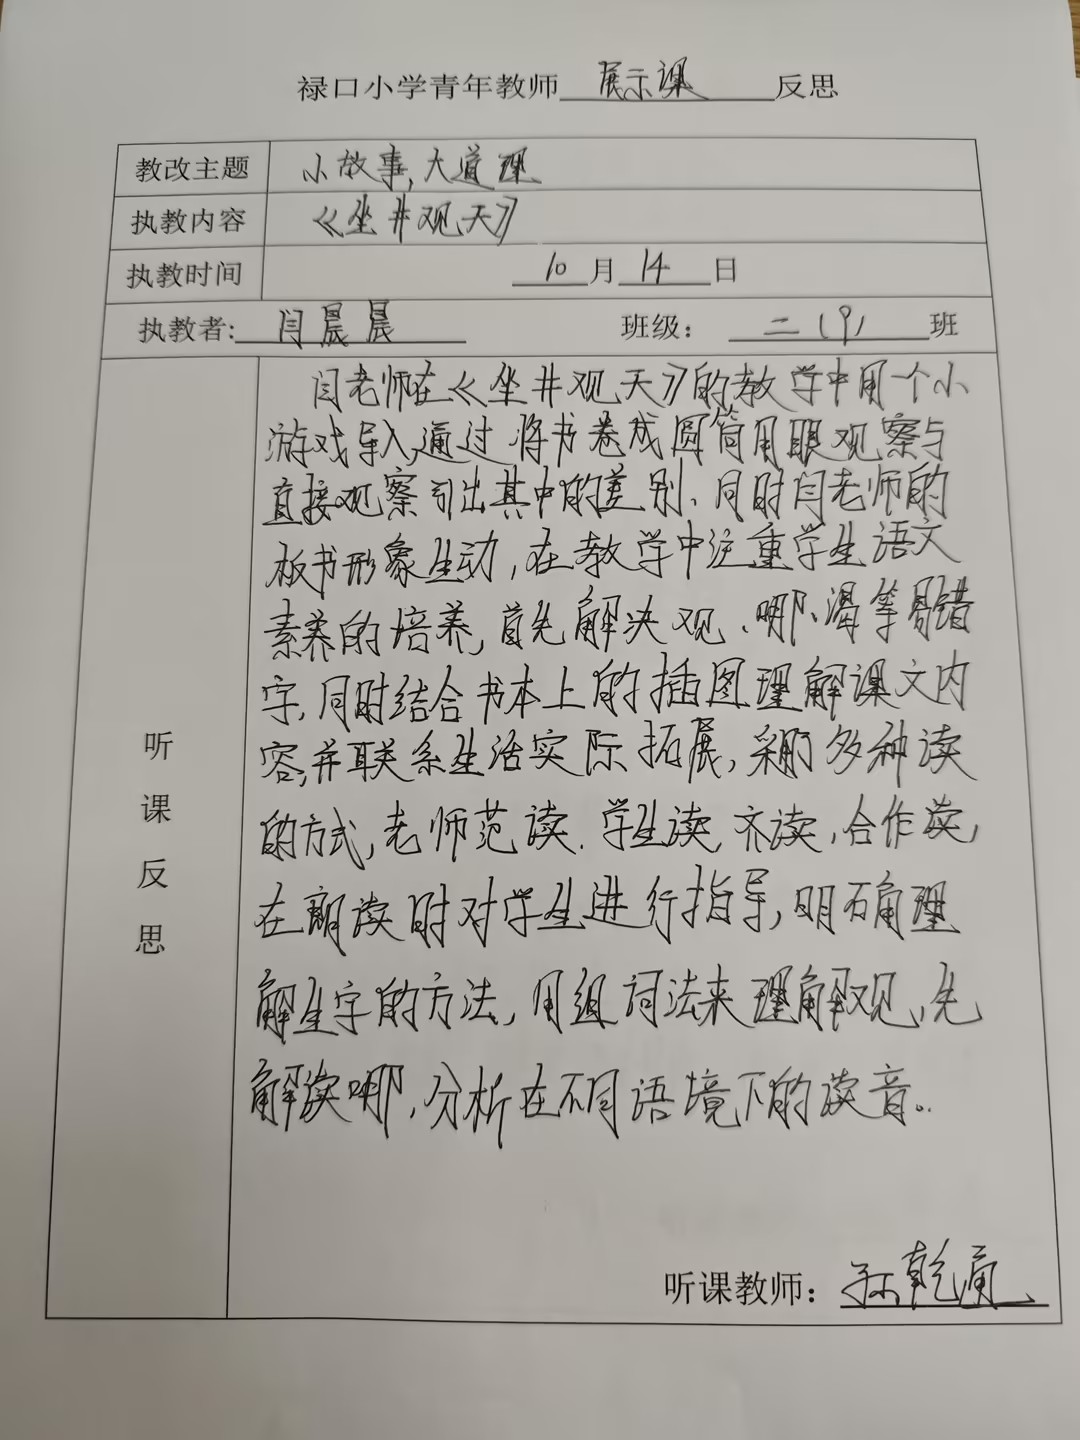 禄口小学青年教师 展示课 反思
教改主题 小故事,大道理
执教内容 《坐井观天》
执教时间 10月14日
执教者: 闫晨晨 班级: 二(9)班
听课反思
闫老师在《坐井观天》的教学中用一个小
游戏导入,通过将书卷成圆筒用眼观察与
直接观察引出其中的差别、同时闫老师的
板书形象生动,在教学中注重学生语文
素养的培养,首先解决观、哪、渴等易错
字,同时结合书本上的插图理解课文内
容,并联系生活实际拓展,采用多种读
的方式,老师范读、学生读,齐读,合作读,
在朗读时对学生进行指导,明确理
解生字的方法,用组词法来理解观,先
解读哪,分析在不同语境下的读音。
听课教师: 孙乾